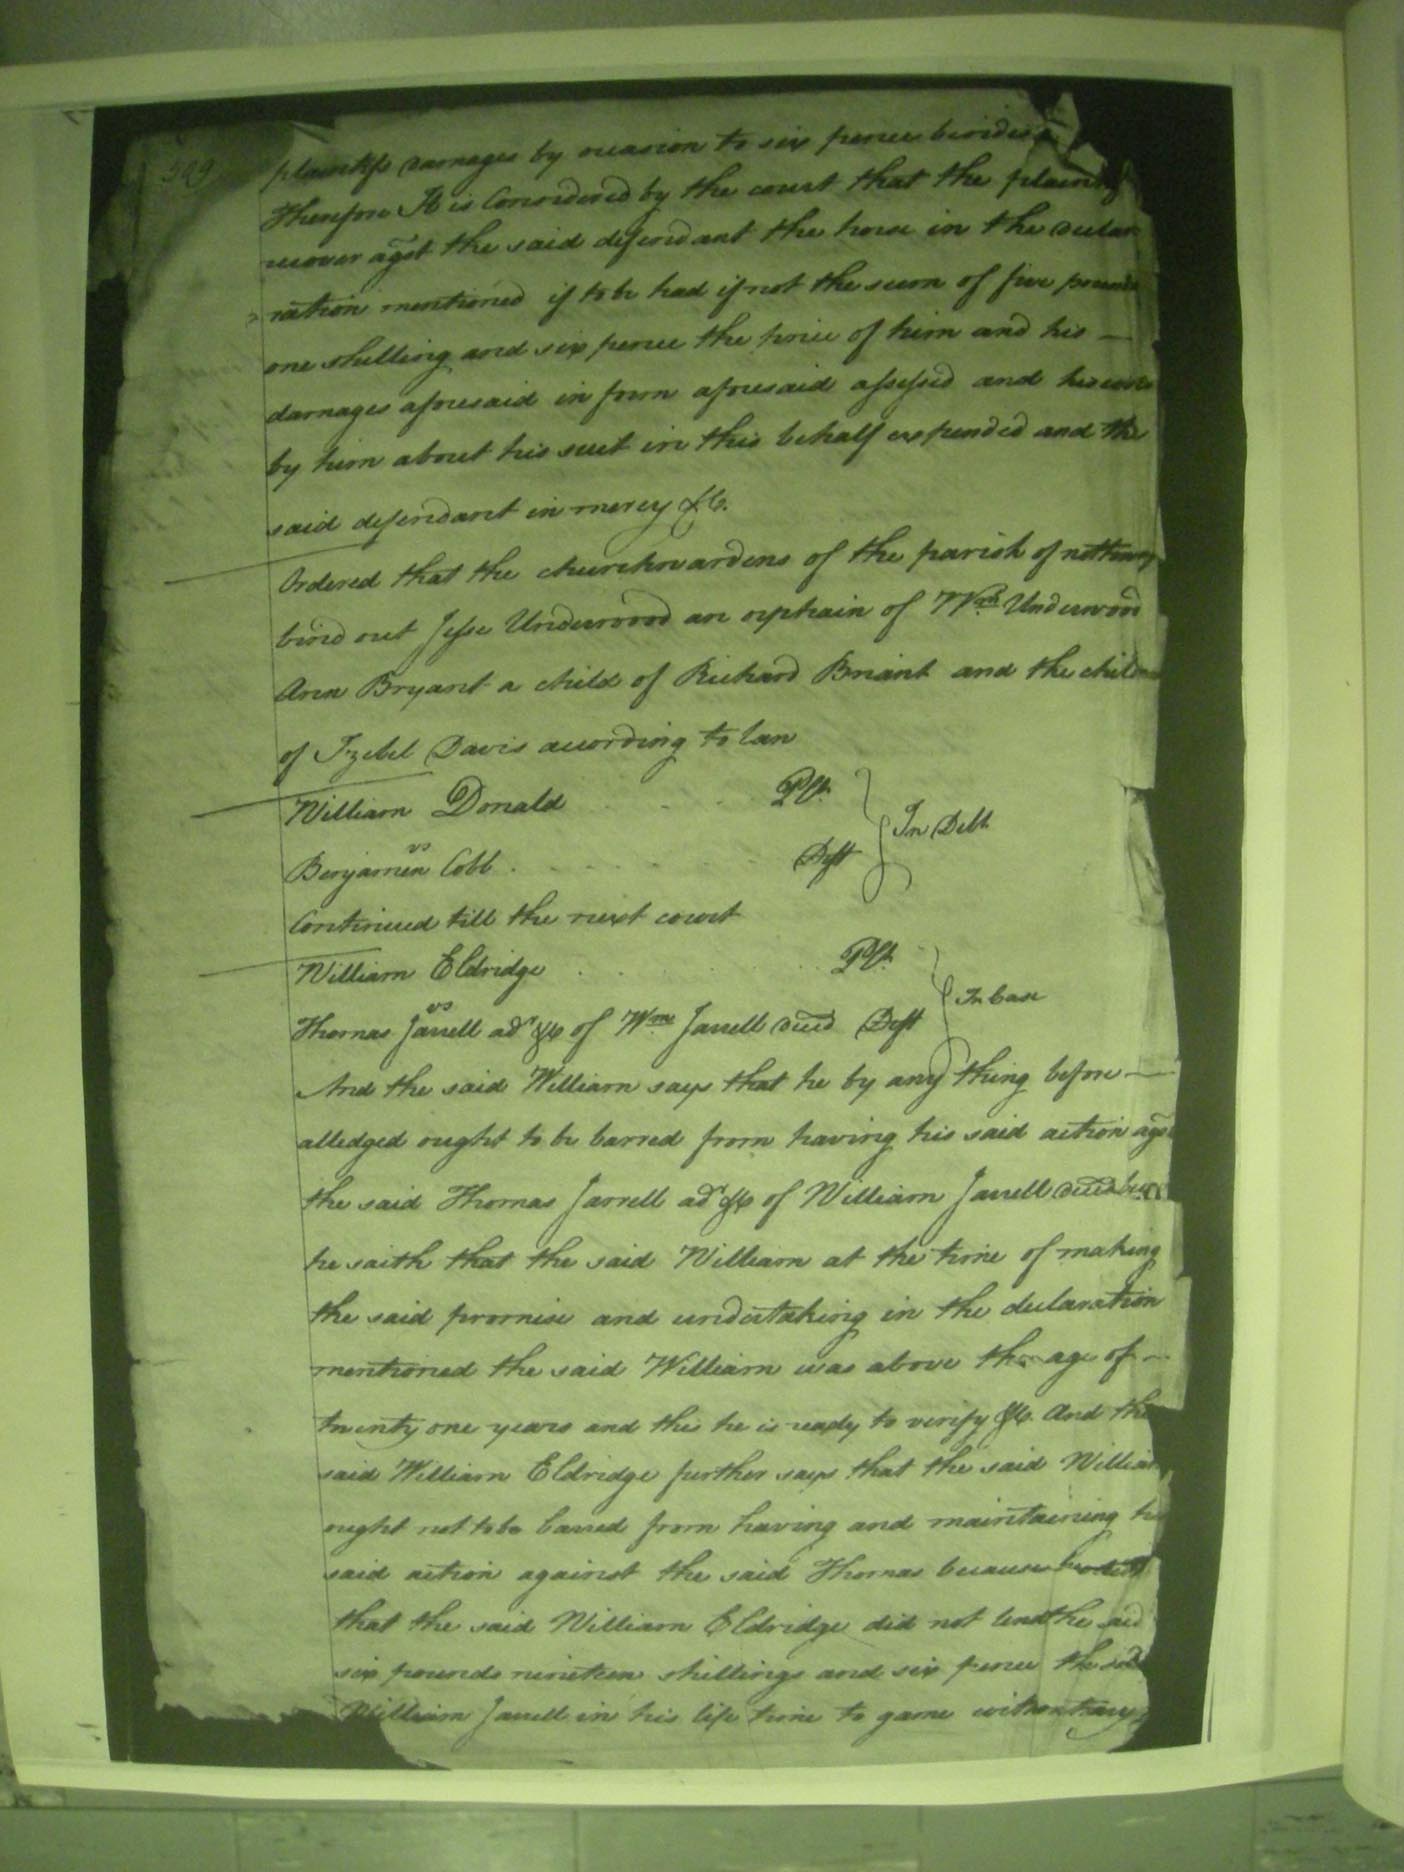 509
plaintifs damages by occasion to six pence besides
Therefore It is Considered by the court that the plaintif
recover agst the said defendant the horse in the decla
ration mentioned if to be had if not the sum of five pounds
one shilling and six pence the price of him and his —
damages aforesaid in form aforesaid assessed and his costs
by him about his suit in this behalf expended and the
said defendant in mercy &c.
Ordered that the churchwardens of the parish of nottoway
bind out Jesse Underwood an orphain of Wm Underwood
Ann Bryant a child of Richard Briant and the children
of Izebel Davis according to law
William Donald . . . Plt.
vs In Debt
Benjamin Cobb . . . Deft
Continued till the next court
William Eldridge . . . Plt.
vs In Case
Thomas Jarrell adr &c of Wm Jarrell decd Deft
And the said William says that he by any thing before —
alledged ought to be barred from having his said action agst
the said Thomas Jarrell adr &c of William Jarrell decd
he saith that the said William at the time of making
the said promise and undertaking in the declaration
mentioned the said William was above the age of —
twenty one years and this he is ready to verify &c. And the
said William Eldridge further says that the said William
ought not to be barred from having and maintaining his
said action against the said Thomas because
that the said William Eldridge did not lend the said
six pounds nineteen shillings and six pence the said
William Jarrell in his life time to game